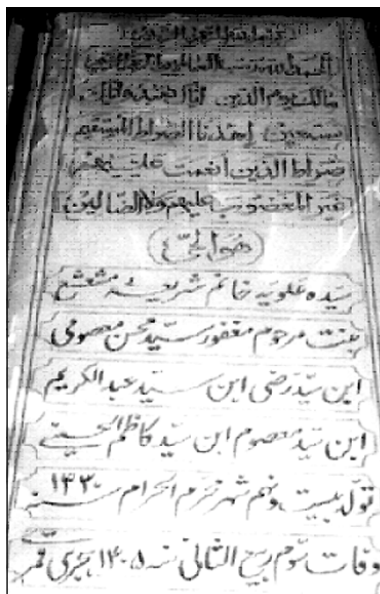 بسم الله الرحمن الرحیم
الحمد لله رب العالمین الرحمن الرحیم
مالک یوم الدین ایاک نعبد و ایاک
نستعین اهدنا الصراط المستقیم
صراط الذین انعمت علیهم
غیر المغضوب علیهم ولا الضالین
هو الحی
سیده علویه خانم شریعه مشعشع
بنت مرحوم مغفور سید محسن معصومی
ابن سید رضی ابن سید عبدالکریم
ابن سید معصوم ابن سید کاظم الحسینی
تولد بیست و نهم شهر محرم الحرام سنه ۱۳۲۰
وفات سوم ربیع الثانی سنه ۱۴۰۵ هجری قمری